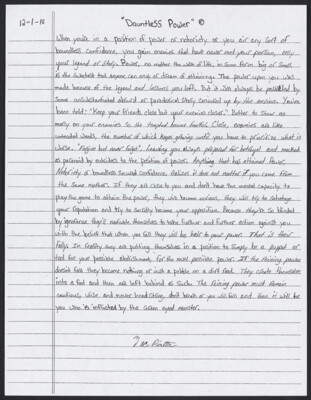 12-1-18
"Dauntless Power" ©
When you're in a position of power or notoriety or you air any sort of
boundless confidence, you gain enemies that have never met your person, only
your legend or story. Power, no matter the walk of life, in some form big or small
is the sweetest that anyone can only dream of attaining. The power upon you was
made because of the legend and lessons you left. But it is always be
some unsubstantiated absurd or paradoxical story conjured up by the envious. You've
been told: "Keep your friends close but your enemies closer." Better to show no
mercy on your enemies so the thought
wounds, the number of which keeps growing until you have to prioritize what is
worse. "Forgive but never forget". Leading you always prepared for betrayal and marked
as paranoid by outsiders to the position of power. Anything that has attained Power,
Notoriety or boundless confidence, it does not matter if you came from
the same mother. If they are close to you and don't have the mental capacity to
play the game to obtain the power, they will become envious, they will try to sabotage
your reputation and try to swiftly become your opposition. Because they're so blinded
by ignorance they'll motivate themselves to take further and further action against you
with the beliefs that when you fall they will be heir to your power. That is their
folly. In reality they are putting themselves in a position to simply be a puppet or
tool for your possible abolishment, for the next possible power. If the reigning power
doesn't fall they become nothing or just a pebble on a dirt road. They create themselves
into a fool and then are left behind as such. The reigning power must remain
cautious, wise and never hesitating, don't break or you will fall and then it will be
you who is inflicted by the green eyed monster.